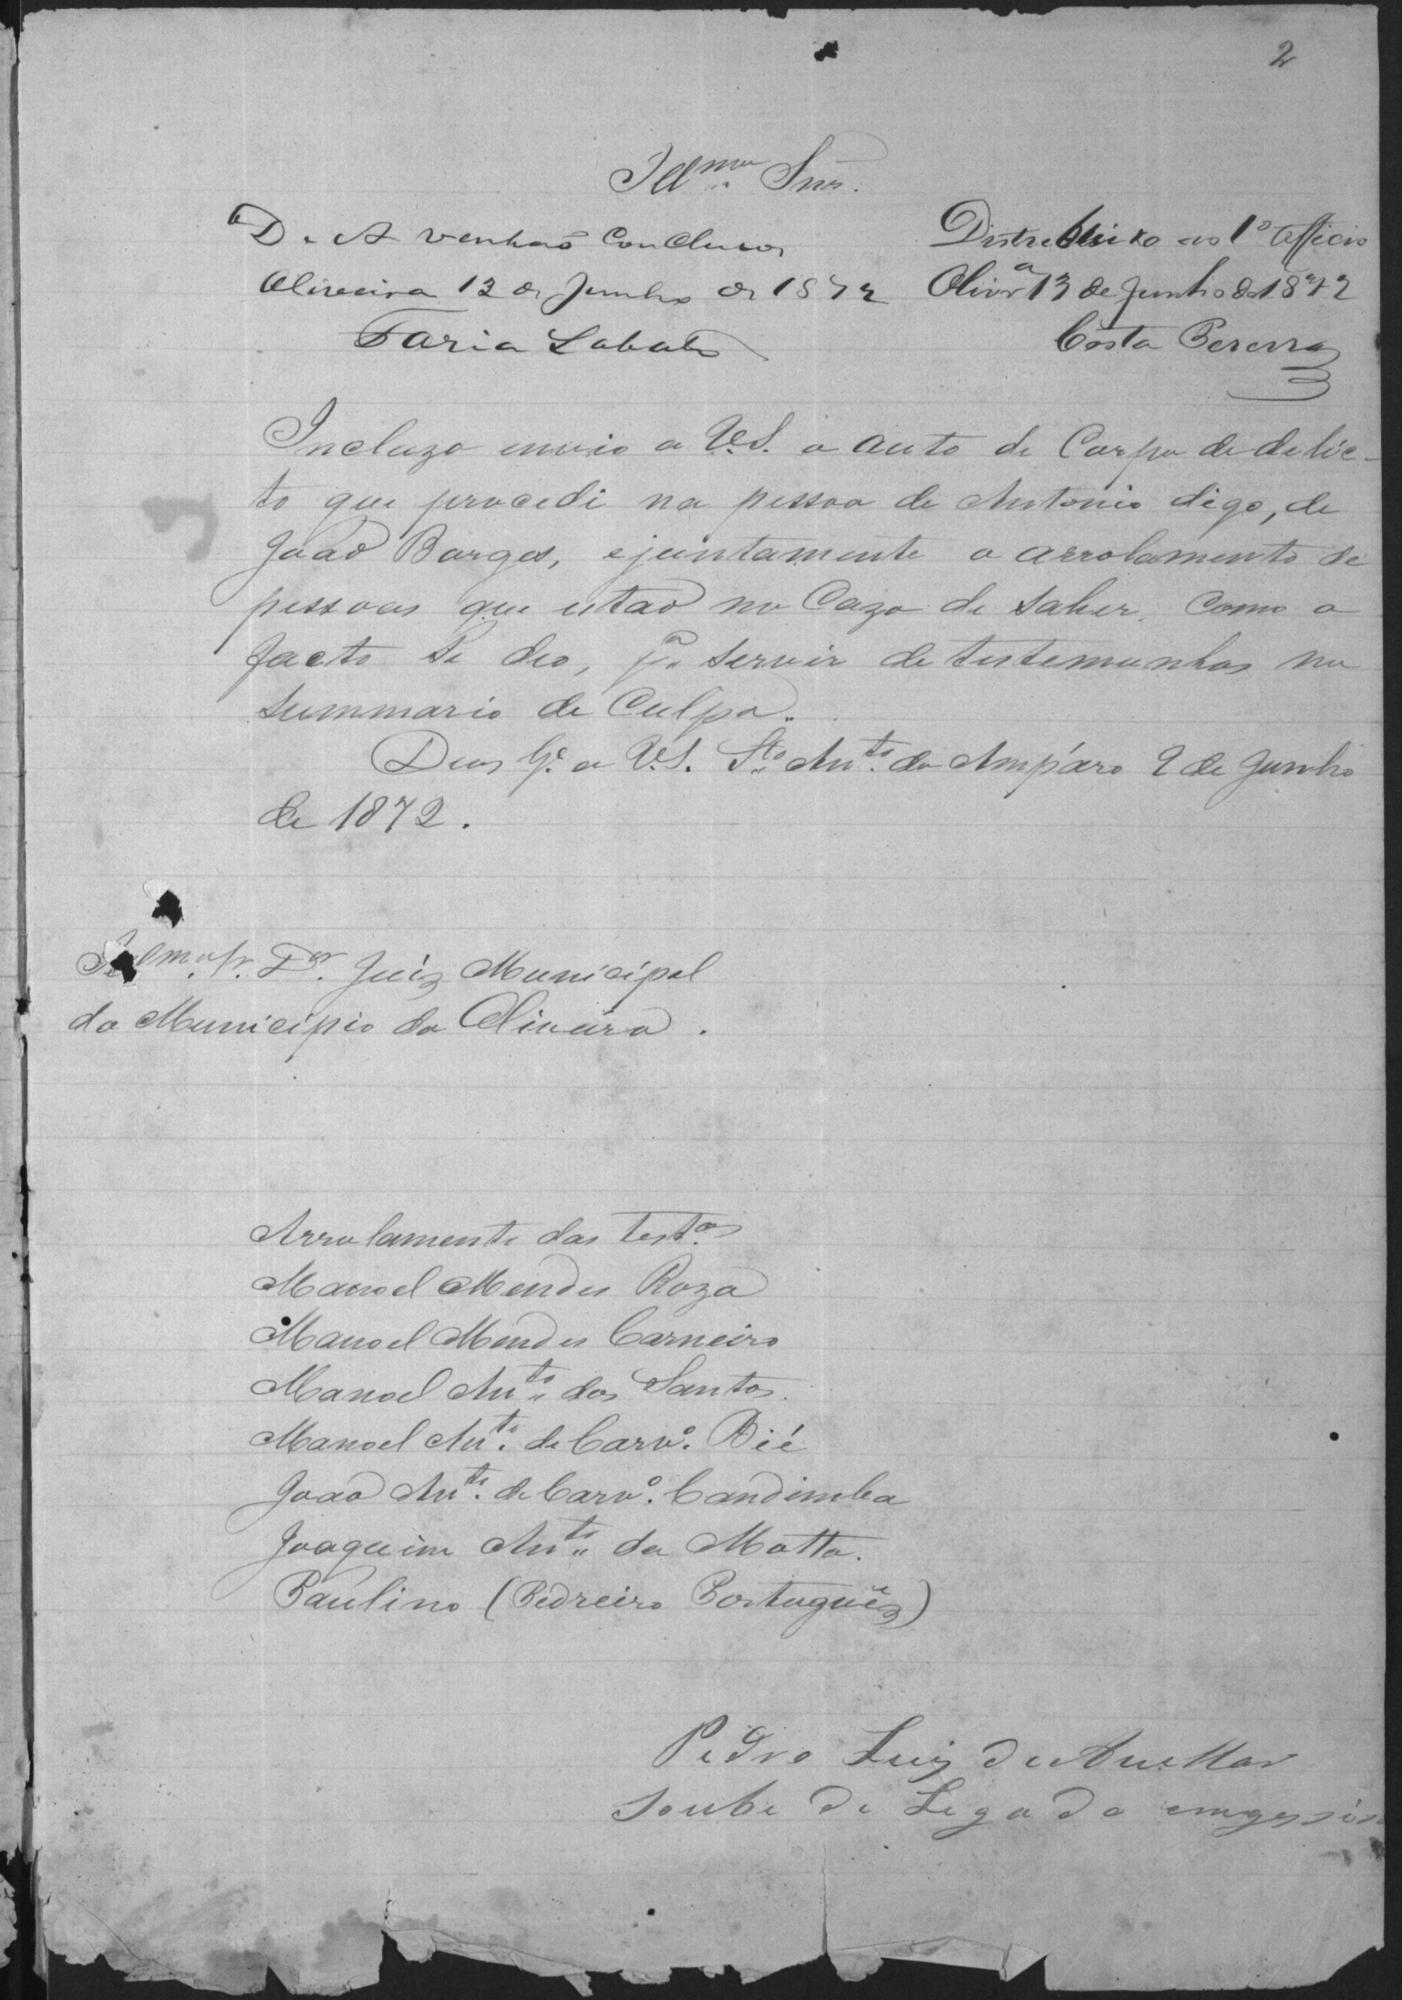 2
Illmo. Snr.
D. A venhão Concluzos
Oliveira 12 de Junho de 1872
Faria Lobato
Distrebuido ao 1º Officio
Olivrª 13 de Junho de 1872
Costa Pereira
Incluzo envio a V.S. o auto de Corpo de delic-
to que procedi na pessoa de Antonio digo, de
João Borges, ejuntamente o arrolamento de
pessoas que estao no Cazo de saber, como o
facto se deo, pª servir de testemunhas no
summario de Culpa.
Deos Ge. a V.S. Sto. Anto. do Ampáro 9 de Junho
de 1872.
Illmo. Sr. Dor. Juiz Municipal
do Municipio da Oliveira.
Arrolamento das testas.
Manoel Mendes Roza
Manoel Mendes Carneiro
Manoel Anto. dos Santos.
Manoel Anto. de Carvo. Bié
João Anto. de Carvo. Candimba
Joaquim Anto. da Motta.
Paulino (Pedreiro Portuguêz)
Pedro Luiz de Avellar
Soube de Legado